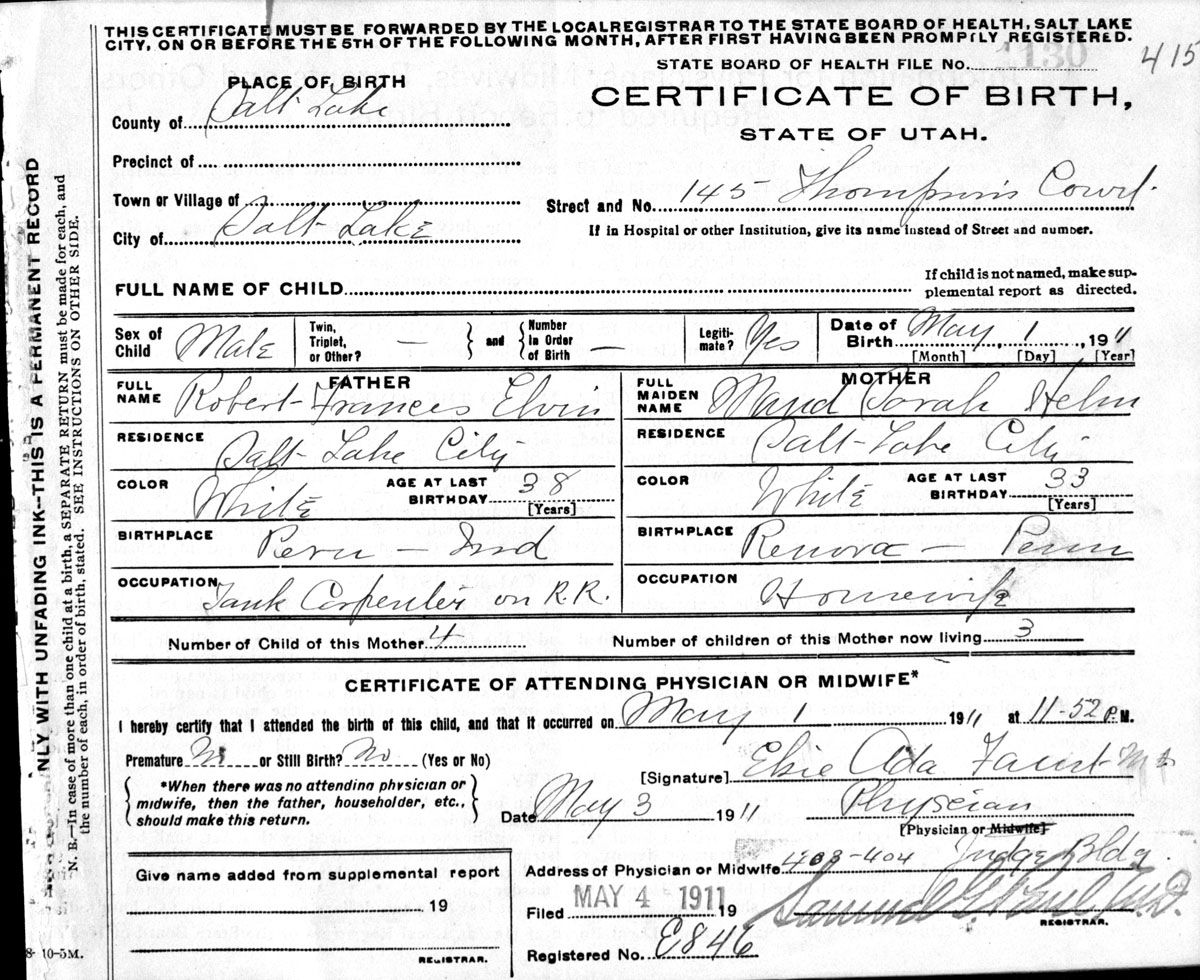 THIS CERTIFICATE MUST BE FORWARDED BY THE LOCAL REGISTRAR TO THE STATE BOARD OF HEALTH, SALT LAKE
CITY, ON OR BEFORE THE 5TH OF THE FOLLOWING MONTH, AFTER FIRST HAVING BEEN PROMPTLY REGISTERED.
STATE BOARD OF HEALTH FILE No. 1130
415
PLACE OF BIRTH
CERTIFICATE OF BIRTH,
STATE OF UTAH.
County of Salt Lake
Precinct of
Town or Village of
Street and No. 145 Thompson's Court.
City of Salt Lake
If in Hospital or other Institution, give its name instead of Street and number.
FULL NAME OF CHILD
If child is not named, make sup-
plemental report as directed.
Sex of Child Male
Twin, Triplet, or Other? —
and
Number in Order of Birth —
Legiti-mate? Yes
Date of Birth May 1, 1911
[Month] [Day] [Year]
FATHER
FULL NAME Robert Frances Elvin
MOTHER
FULL MAIDEN NAME Maud Sarah Helm
RESIDENCE Salt Lake City
RESIDENCE Salt-Lake City
COLOR White AGE AT LAST BIRTHDAY 38 [Years]
COLOR White AGE AT LAST BIRTHDAY 33 [Years]
BIRTHPLACE Peru — Ind
BIRTHPLACE Renova — Penn
OCCUPATION Tank Carpenter on R.R.
OCCUPATION Housewife
Number of Child of this Mother 4
Number of children of this Mother now living 3
CERTIFICATE OF ATTENDING PHYSICIAN OR MIDWIFE*
I hereby certify that I attended the birth of this child, and that it occurred on May 1 1911 at 11-52 P.M.
Premature No or Still Birth? No (Yes or No)
[Signature] Elsie Ada Faust M D
*When there was no attending physician or
midwife, then the father, householder, etc.,
should make this return.
Date May 3 1911 Physician
[Physician or Midwife]
Address of Physician or Midwife 403-404 Judge Bldg.
Give name added from supplemental report
19
REGISTRAR.
Filed MAY 4 1911 19
Samuel G. Paul M.D.
REGISTRAR.
Registered No. E846
8-10-5M.
NLY WITH UNFADING INK--THIS IS A PERMANENT RECORD
N. B.—In case of more than one child at a birth, a SEPARATE RETURN must be made for each, and
the number of each, in order of birth, stated. SEE INSTRUCTIONS ON OTHER SIDE.